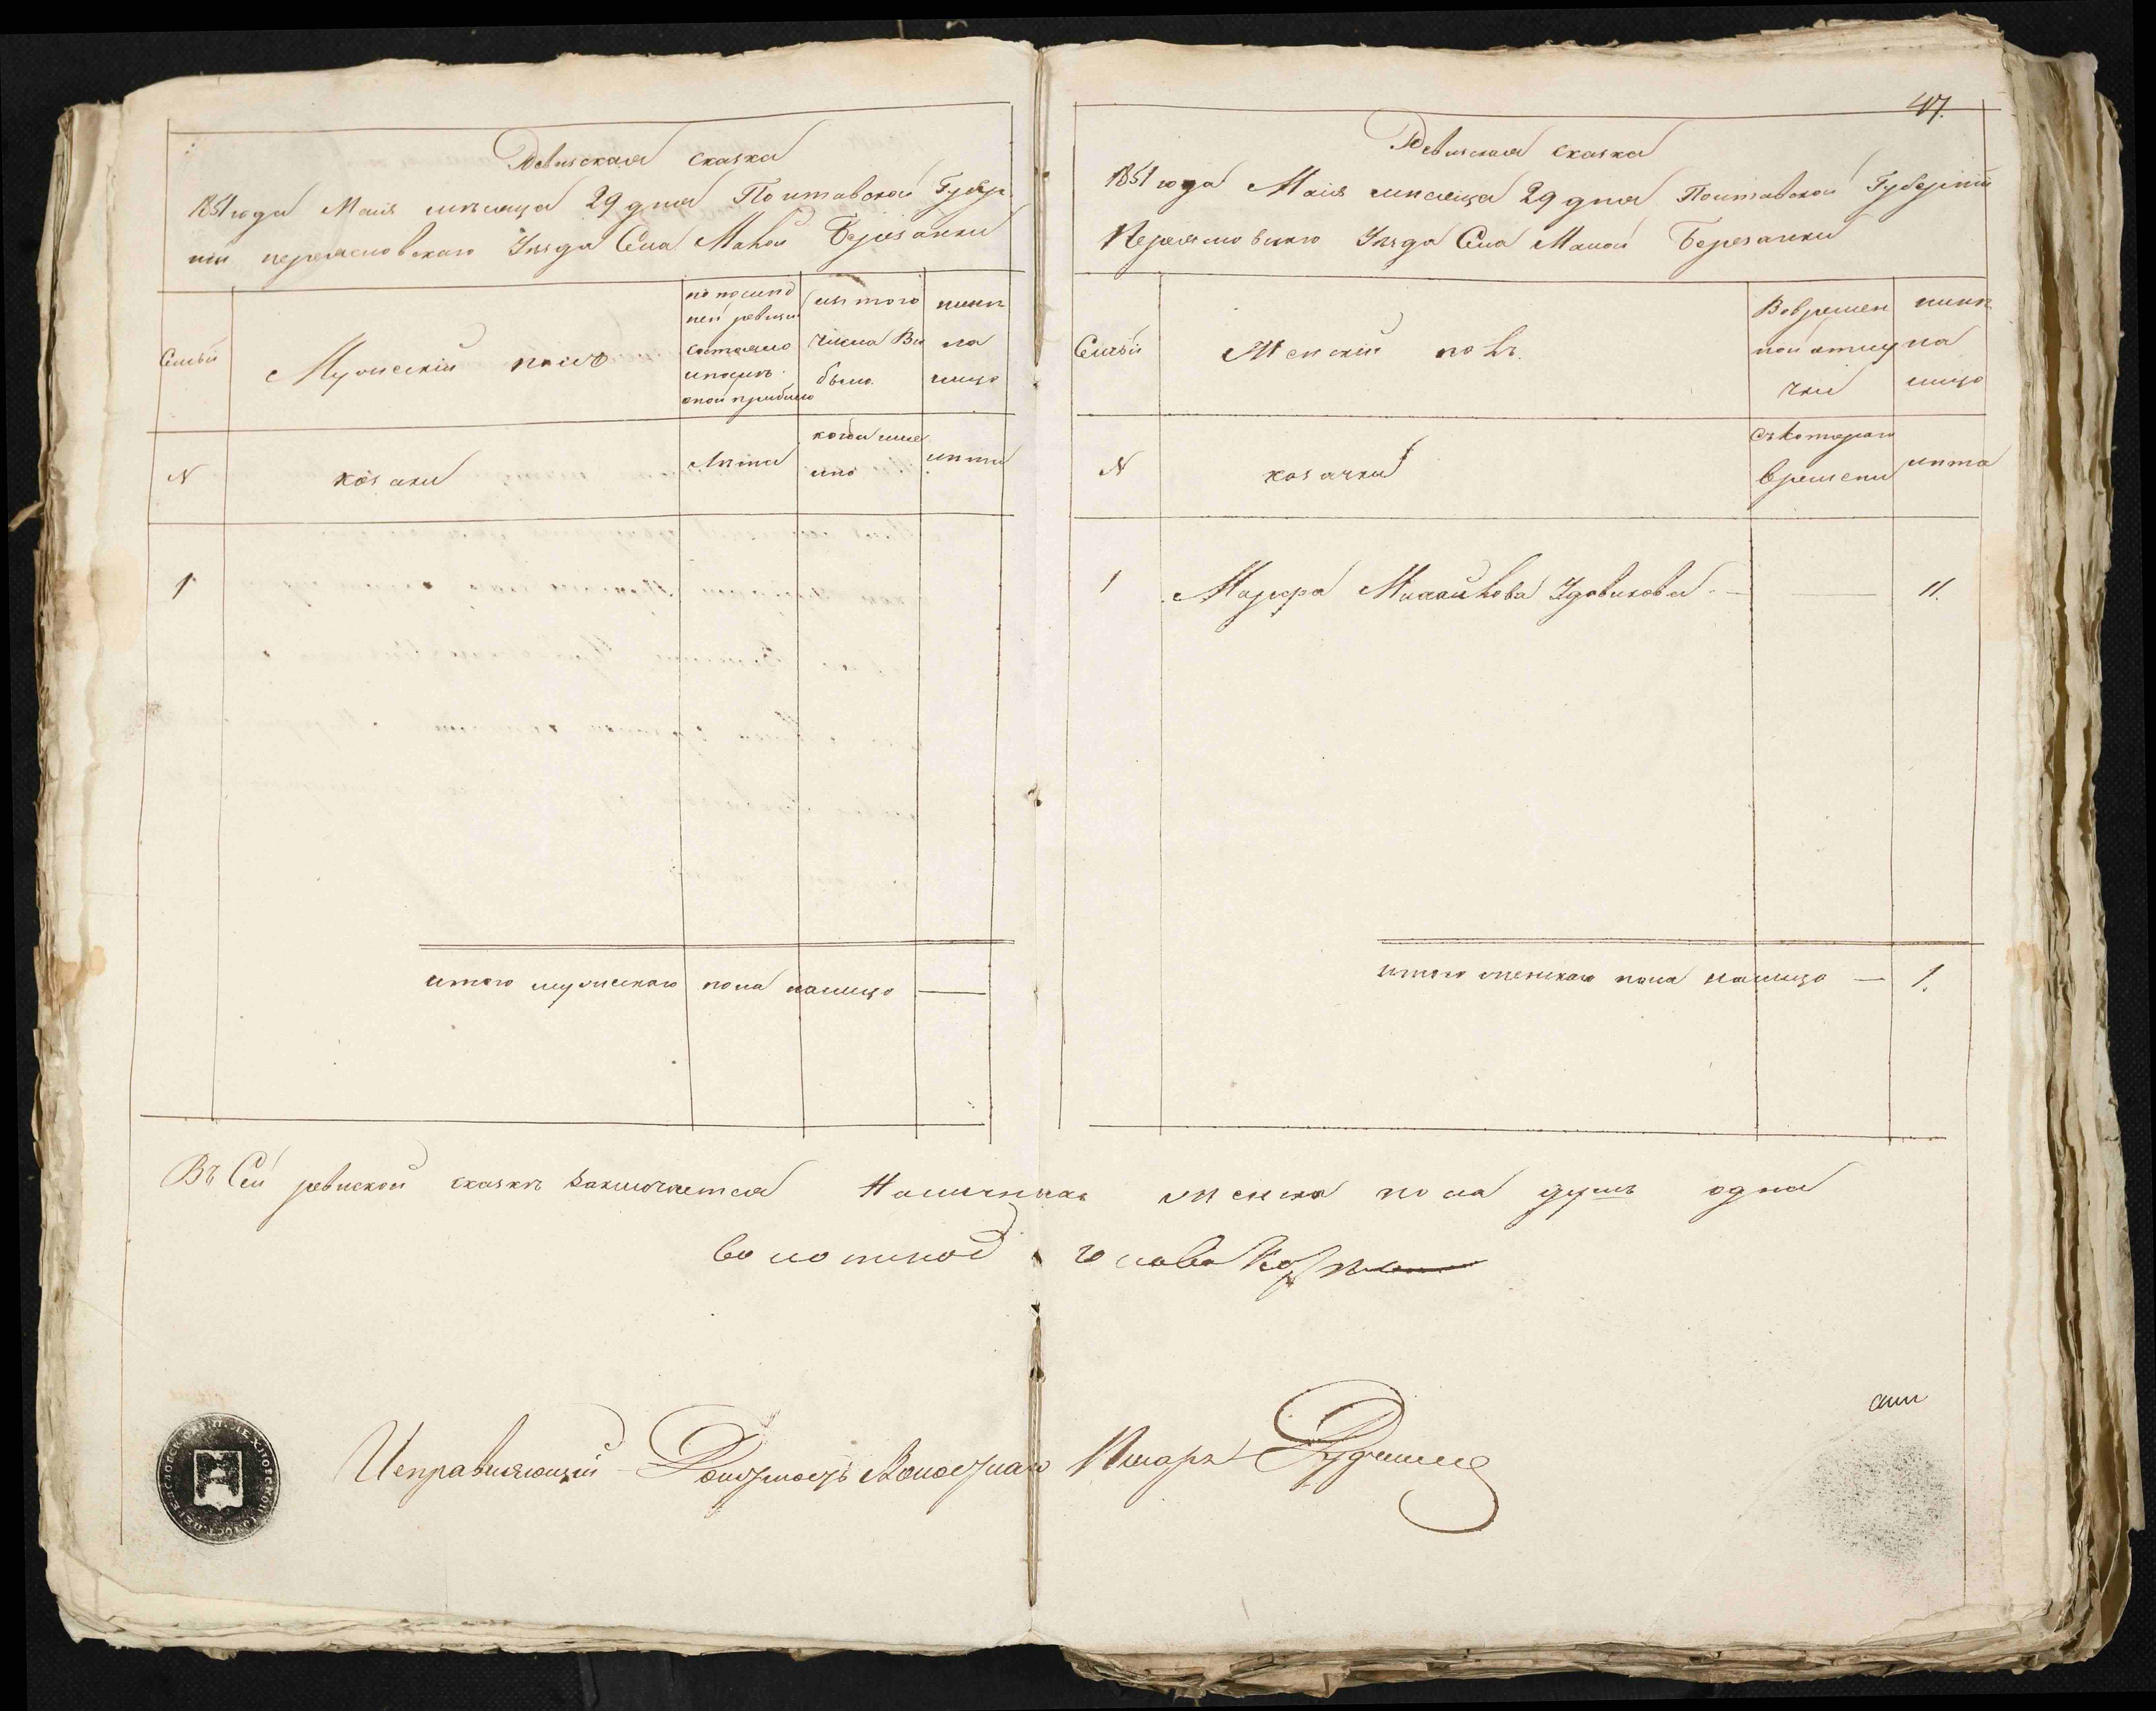 Ревиская сказка
1851 года Маія мѣсяца 29 дня Полтавской Губер
ніи переясловскаго Уѣзда Села Малой Березанки
Семьи
Мужескій полъ
по послѣд
ней ревизіи
состояло
и послѣ
оной прибыло
Изъ того
числа Вы
было
нынѣ
на
лицо
N
козаки
Лѣта
когда име
нно
лѣта
1
итого мужескаго пола налицо —
47.
Ревиская сказка
1851 года Маія мѣсяца 29 дня Полтавской Губерніи
Переясловскаго Уѣзда Села Малой Березанки
Семьи
Женскій полъ.
Вовремен
ной отлу
чки
нынѣ
на
лицо
N
козачки
Съ котораго
времени
лѣта
1 Марфа Михайлова Удовикова — — 11.
итого женскаго пола налицо — 1.
Въ Сей ревиской сказкѣ заключается Наличная женска пола душъ одна
волостной голова
Исправляющій Должность Волостнаго Писаря